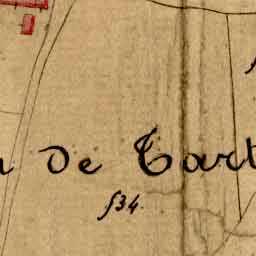 de Tart
534.